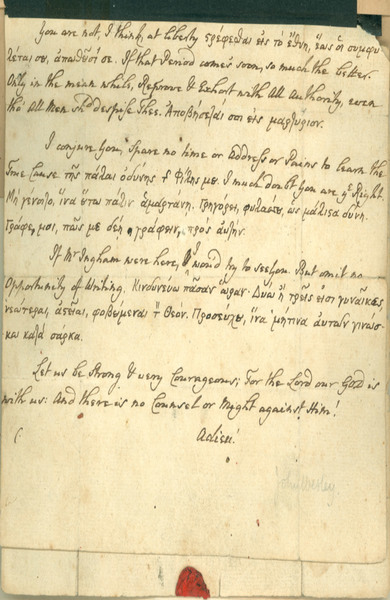 You are not, I think, at liberty στρέφεσθαι εἰς τὰ ἔθνη, ἕως οἱ συμφυ-
λέται σε, ἀπωθῶσί σε. If that Period comes soon, so much the better.
Only in the mean while, Reprove & Exhort with All Authority, even
tho' All Men sh'd despise Thee. Ἀποβήσεταί σοι εἰς μαρτύριον.
I conjure You, Spare no time or Address or Pains to learn the
True Cause τῆς πάλαι ὀδύνης τ φίλης με. I much doubt You are yᵉ Right.
Μὴ γένοιτο, ἵνα οὕτω πάλιν ἁμαρτάνῃ. Γρηγόρει, φύλασσε, ὡς μάλιστα δύνῃ.
Γράφε, μοι, πῶς με δεῖ γράφειν, πρὸς αὐτήν.
If Mʳ Ingham were here, I wou'd try to see You. But omit no
Opportunity of Writing. Κινδυνεύω πᾶσαν ὥραν. Δύω ἢ τρεῖς εἰσὶ γυναῖκες,
νεώτεραι, ἀστεῖαι, φοβούμεναι τ Θεόν. Προσεύχε, ἵνα μήτινα αὐτῶν γινώσ-
κω κατὰ σάρκα.
Let us be Strong & very Courageous; For the Lord our God is
with us: And there is no Counsel or Might against Him!
Adieu!
John Wesley